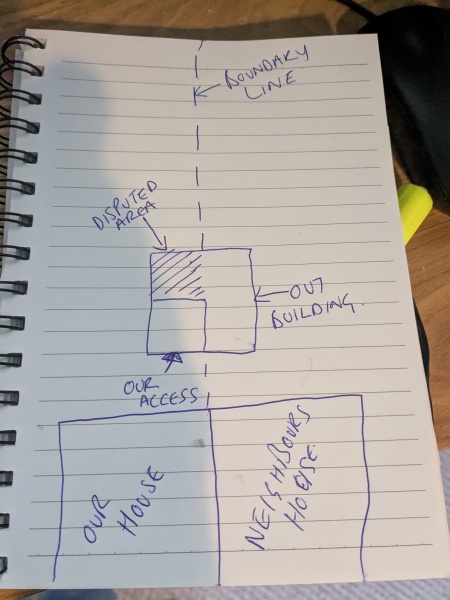 BOUNDARY
LINE
DISPUTED
AREA
OUT
BUILDING.
OUR
ACCESS
OUR
HOUSE
NEIGHBOURS
HOUSE